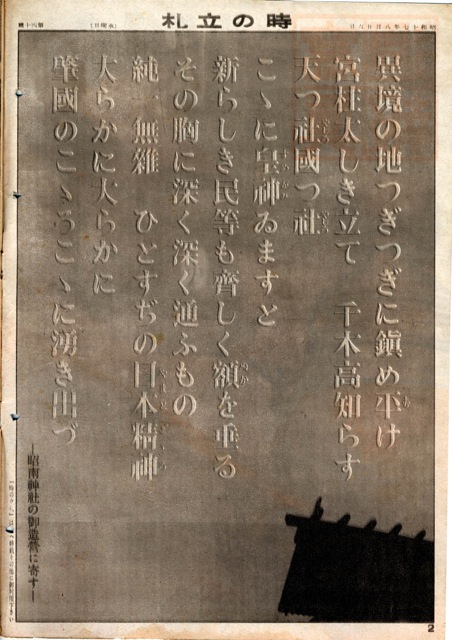 時の立札
異境の地つぎつぎに鎭め平け
宮柱太しき立て 千木高知らす
天つ社國つ社
こゝに皇神ゐますと
新らしき民等も齊しく額を垂る
その胸に深く深く通ふもの
純一無雜 ひとすぢの日本精神
大らかに大らかに
肇國のこゝろこゝに湧き出づ
―昭南神社の御造營に寄す―
2